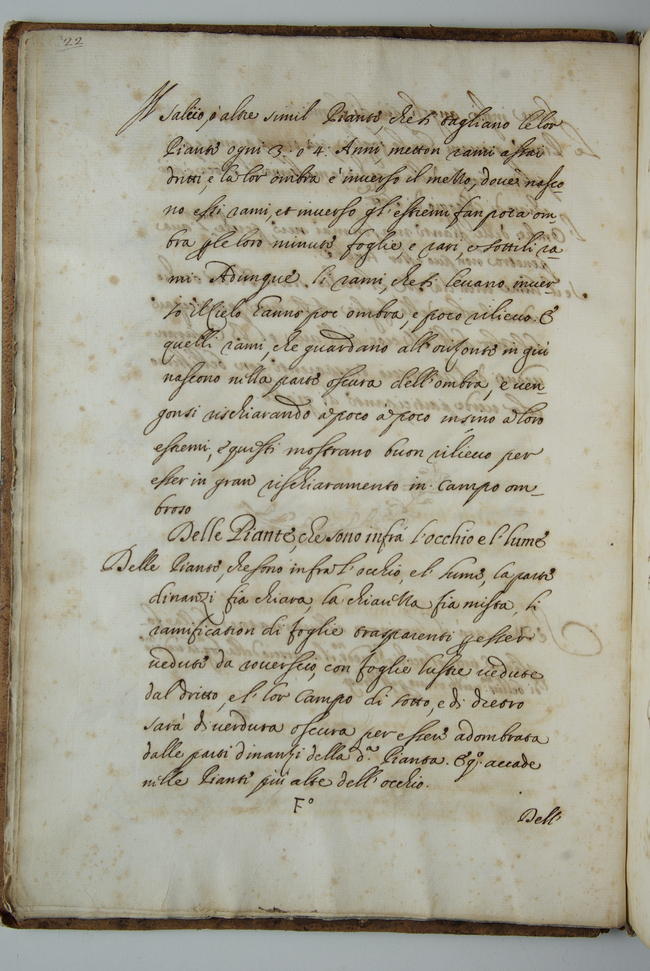 22
Il salcio, o altre simil Piante, che si tagliano le lor
Piante ogni 3. o 4. Anni metton rami assai
dritti, e la lor ombra è inverso il mezzo, dove nasco
no essi rami, et inverso gl'estremi fan poca om-
bra p le loro minute foglie e rari e sottili ra-
mi. Adunque li rami, che si levano inver-
so il Cielo hanno poc ombra, e poco rilievo. E
quelli rami, che guardano all'orizonte in giù
nascono nella parte oscura dell'ombra, e ven-
gonsi rischiarando a poco a poco insino a loro
estremi, e questi mostrano buon rilievo per
esser in gran rischiaramento in campo om-
broso
Delle Piante, che sono infra l'occhio e l'lume
Delle Piante, che sono infra l'occhio, e l' lume, la parte
dinanzi fia chiara, la fia mista, di
ramification di foglie trasparenti p esser
vedute da rouerscio, con foglie lustre vedute
dal dritto, e l lor campo di sotto, e di dietro
sarà di verdura oscura per essere adombrata
dalle parti dinanzi della d.ª Pianta. E qº. accade
nelle Piante più alte dell'occhio.
F°
Dell'